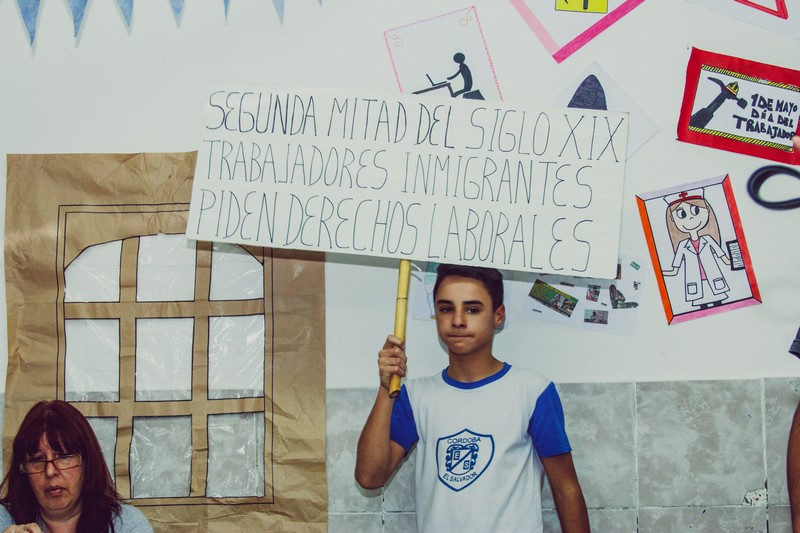 SEGUNDA MITAD DEL SIGLO XIX
TRABAJADORES INMIGRANTES
PIDEN DERECHOS LABORALES
1 DE MAYO
DÍA DEL
TRABAJADOR
CORDOBA
E S
EL SALVADOR